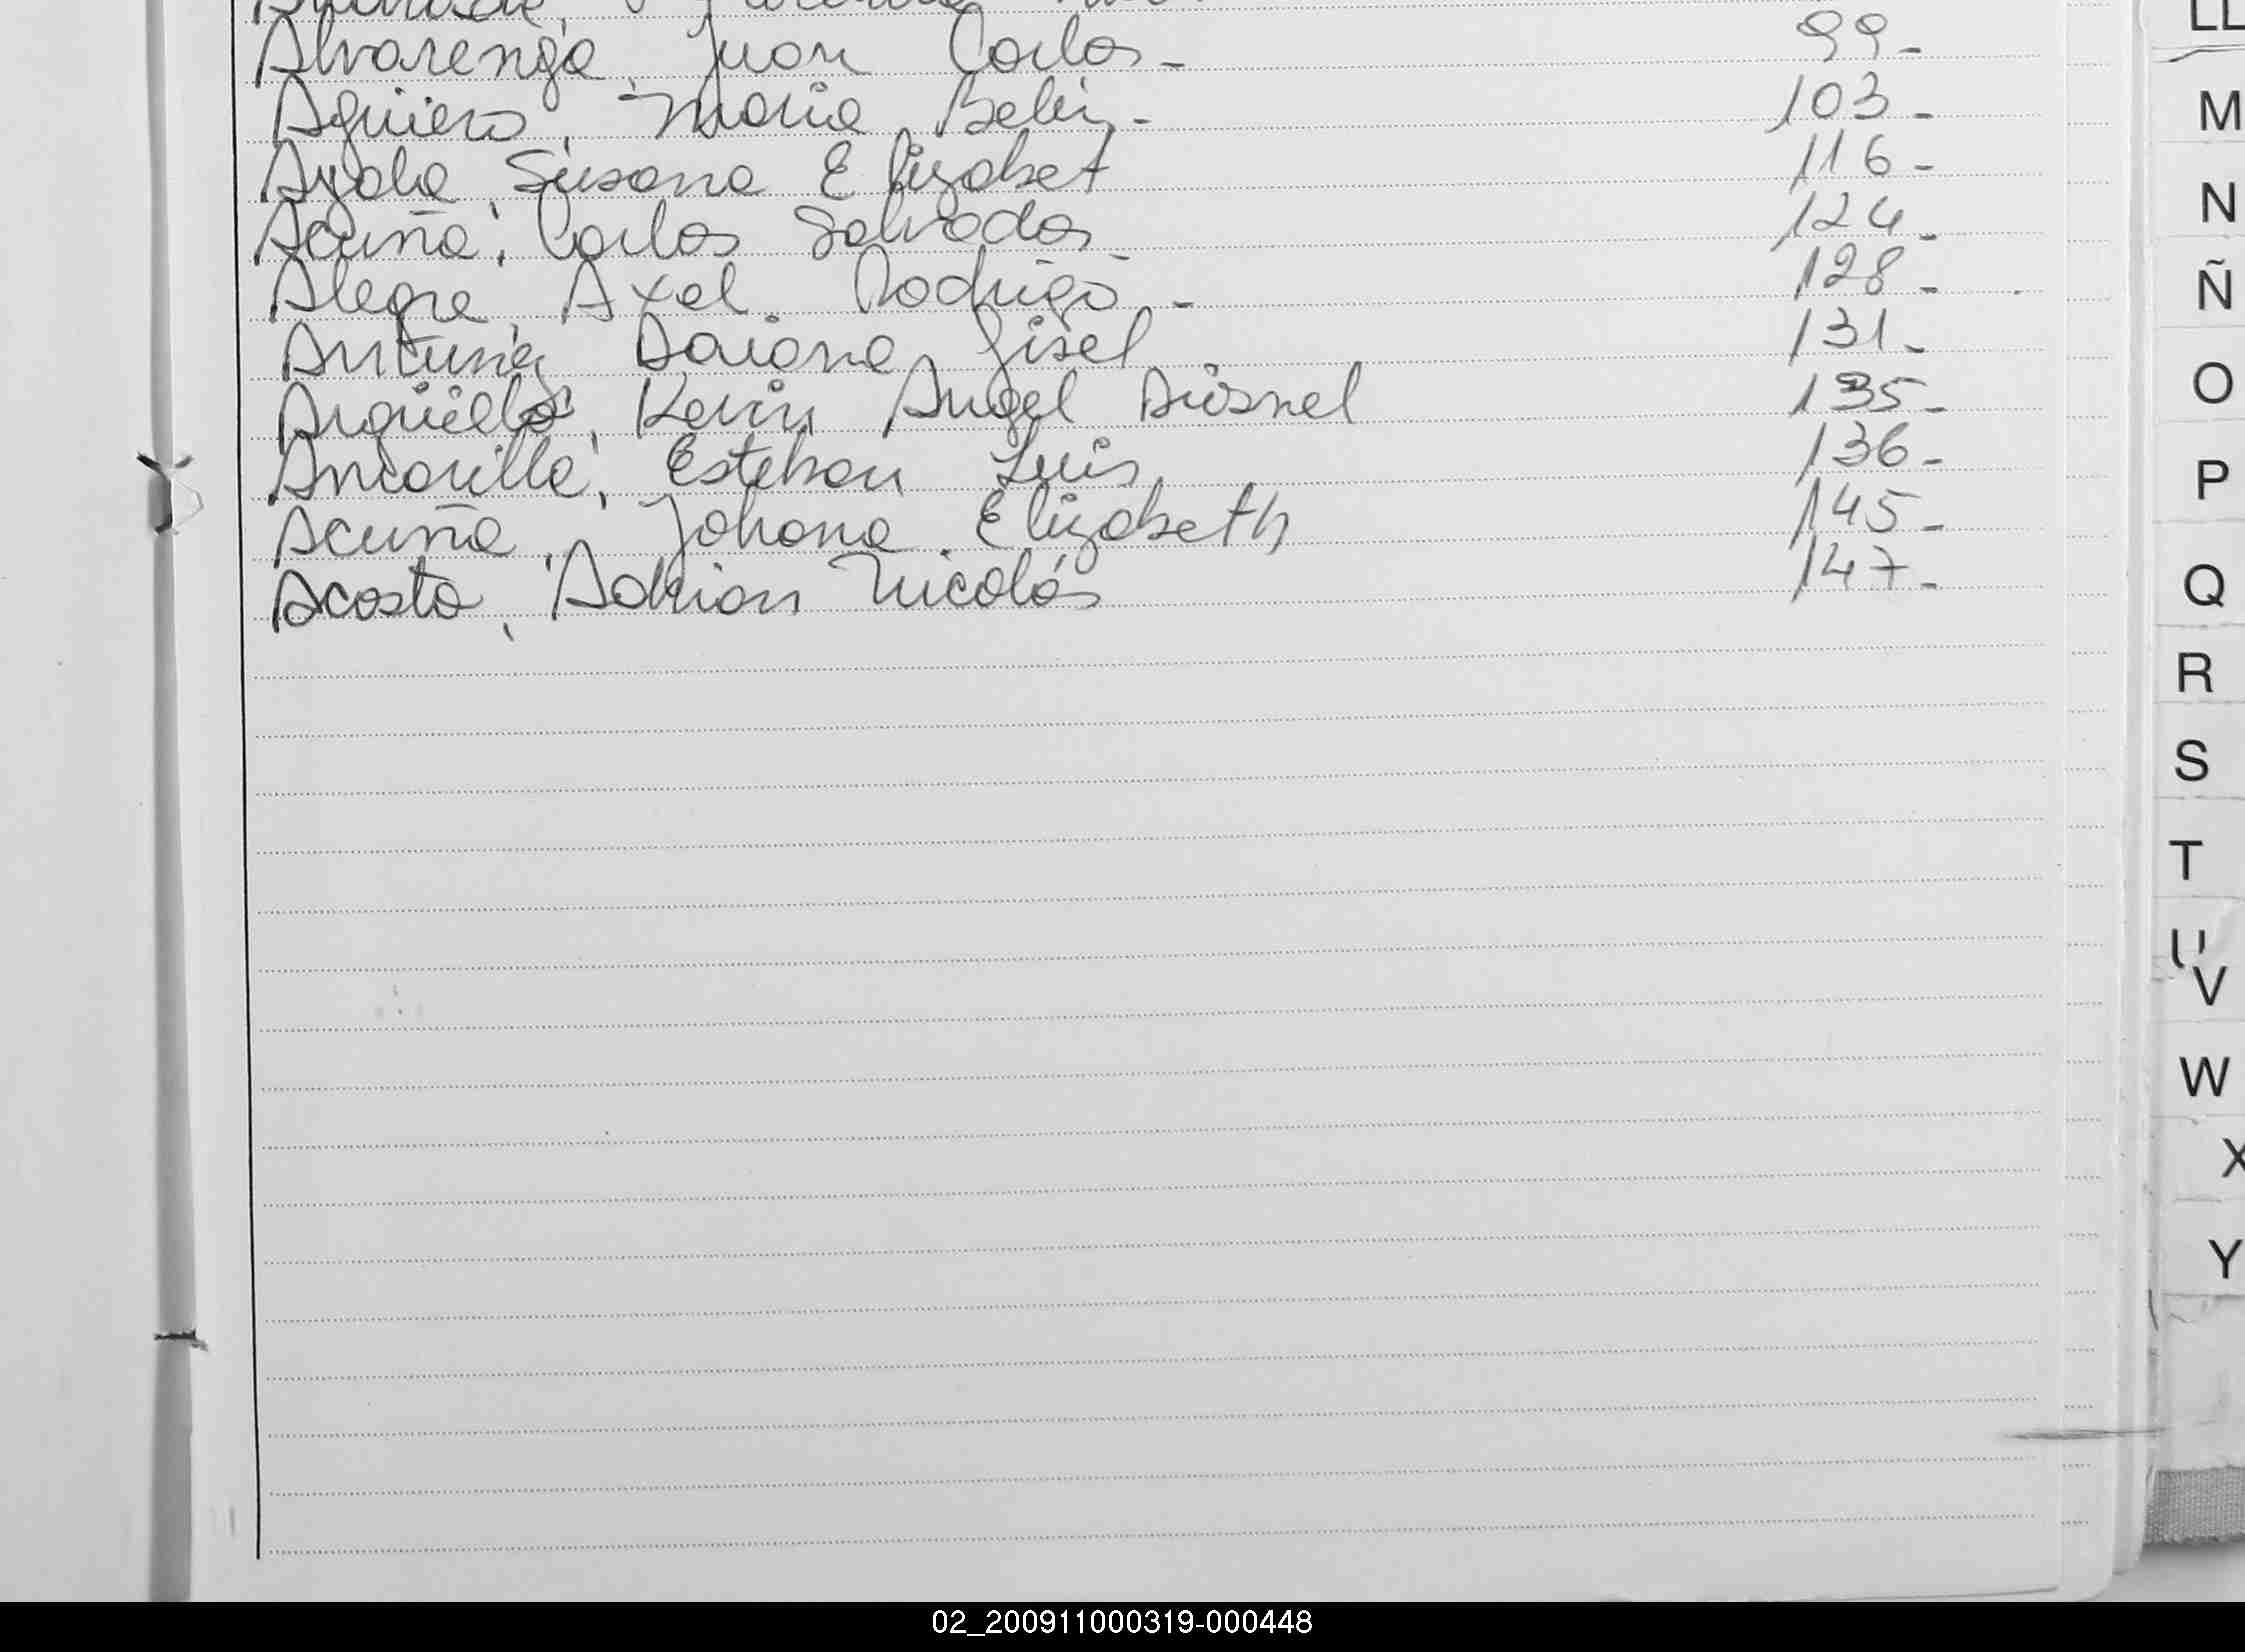 Alvarenga, Juan Carlos - 99 -
Aguiero, Maria Belén - 103 -
Ayala, Susana Elizabet 116 -
Acuña, Carlos Salvador 124 -
Alegre, Axel Rodrigo - 128 -
Antunez Daiana Gisel 131 -
Argüello, Kevin Angel 135 -
Amarilla, Esteban Luis 136 -
Acuña, Johana Elizabeth 145 -
Acosta, Adrian Nicolás 147 -
LL
M
N
Ñ
O
P
Q
R
S
T
U
V
W
X
Y
02_200911000319-000448